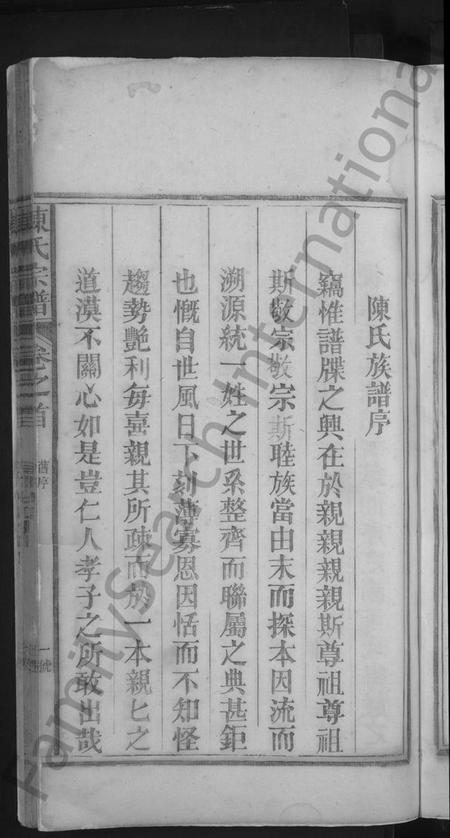 陳氏族譜序
竊惟譜牒之興在於親親親親斯尊祖尊祖
斯敬宗敬宗斯睦族當由末而探本因流而
溯源統一姓之世系整齊而聯屬之典甚鉅
也慨自世風日下刻薄寡恩因恬而不知怪
趨勢艷利每喜親其所疎而於一本親匕之
道漠不關心如是豈仁人孝子之所敢出哉
陳氏宗譜
卷之首
舊序
一
FamilySearch International